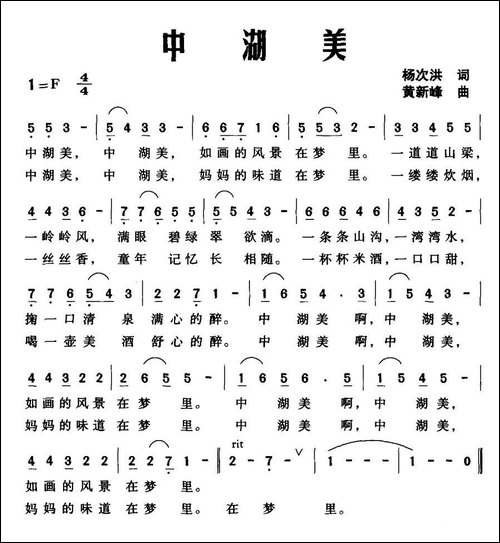 中湖美
1=F 4/4
杨次洪 词
黄新峰 曲
5 5 3 - | 5 4 3 3 - | 6 6 7 1 6 | 5 5 3 - | 3 3 4 5 5 |
中湖美, 中 湖美, 如画的风景 在梦 里。 一道道山梁,
中湖美, 中 湖美, 妈妈的味道 在梦 里。 一缕缕炊烟,
4 4 3 6 - | 7 7 6 5 5 | 5 5 3 - | 6 6 6 4 6 | 4 4 3 2 - |
一岭岭风, 满眼 碧绿 翠 欲滴。 一条条山沟, 一湾湾水,
一丝丝香, 童年 记忆 长 相随。 一杯杯米酒, 一口口甜,
7 7 6 5 4 3 | 2 2 7 1 - | 1 6 5 4 . 3 | 1 5 4 5 - |
掬一口清 泉 满心的醉。 中 湖美 啊, 中 湖美,
喝一壶美 酒 舒心的醉。 中 湖美 啊, 中 湖美,
4 4 3 2 2 | 2 6 5 5 - | 1 6 5 6 . 3 | 1 5 4 5 - |
如画的风景 在梦 里。 中 湖美 啊, 中 湖美,
妈妈的味道 在梦 里。 中 湖美 啊, 中 湖美,
rit
4 4 3 2 2 | 2 7 1 - | 2 - 7 - | 1 - - - | 1 - - 0
如画的风景 在梦 里。
妈妈的味道 在梦 里。 在 梦 里。